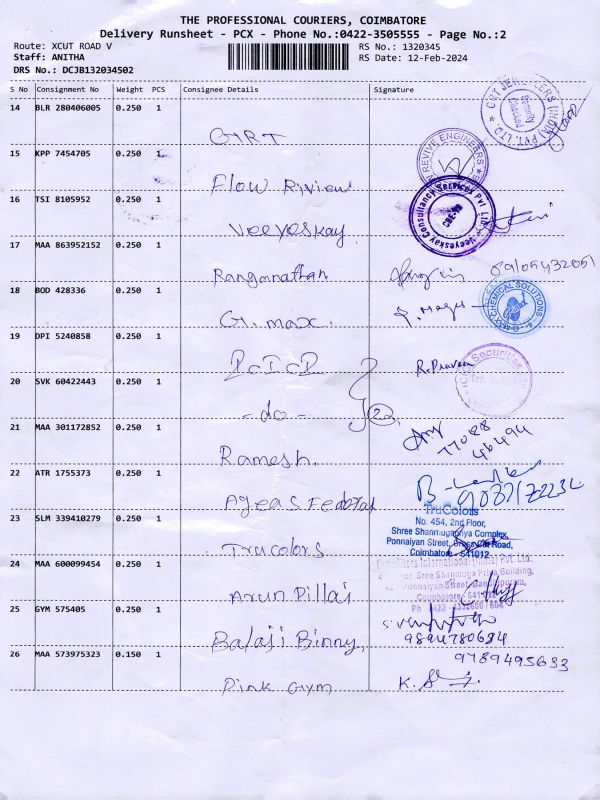 THE PROFESSIONAL COURIERS, COIMBATORE
Delivery Runsheet - PCX - Phone No.:0422-3505555 - Page No.:2
Route: XCUT ROAD V
RS No.: 1320345
Staff: ANITHA
RS Date: 12-Feb-2024
DRS No.: DCJB132034502
S No Consignment No Weight PCS Consignee Details Signature
14 BLR 280406005 0.250 1
GRT
CRT JEWELLERS (INDIA) PVT. LTD.
Security Checked
15 KPP 7454705 0.250 1
Flow Riview
REVIVE ENGINEERS
16 TSI 8105952 0.250 1
Veeyeskay
Veeyeskay Consultancy Services Pvt Ltd
CBE-09
17 MAA 863952152 0.250 1
Ranganathan
18 BOD 428336 0.250 1
G.max.
CHEMICAL SOLUTIONS
19 DPI 5240858 0.250 1
ICICI
R. Praveen
Securities
20 SVK 60422443 0.250 1
-do- 2
21 MAA 301172852 0.250 1
Ramesh.
77088
46494
22 ATR 1755373 0.250 1
Ageas Fedaral
23 SLM 339410279 0.250 1
Trucolors
TruColors
No. 454, 2nd Floor,
Shree Shanmugapriya Complex,
Ponnaiyan Street, Cross Cut Road,
Coimbatore - 641012
24 MAA 600099454 0.250 1
Arun Pillai
International (India) Pvt. Ltd.
Floor Sree Shanmuga Priya Building,
Ponnaiyan Street,
Coimbatore,
25 GYM 575405 0.250 1
Balaji Binny,
9894780684
26 MAA 573975323 0.150 1
9789495633
Pink Gym